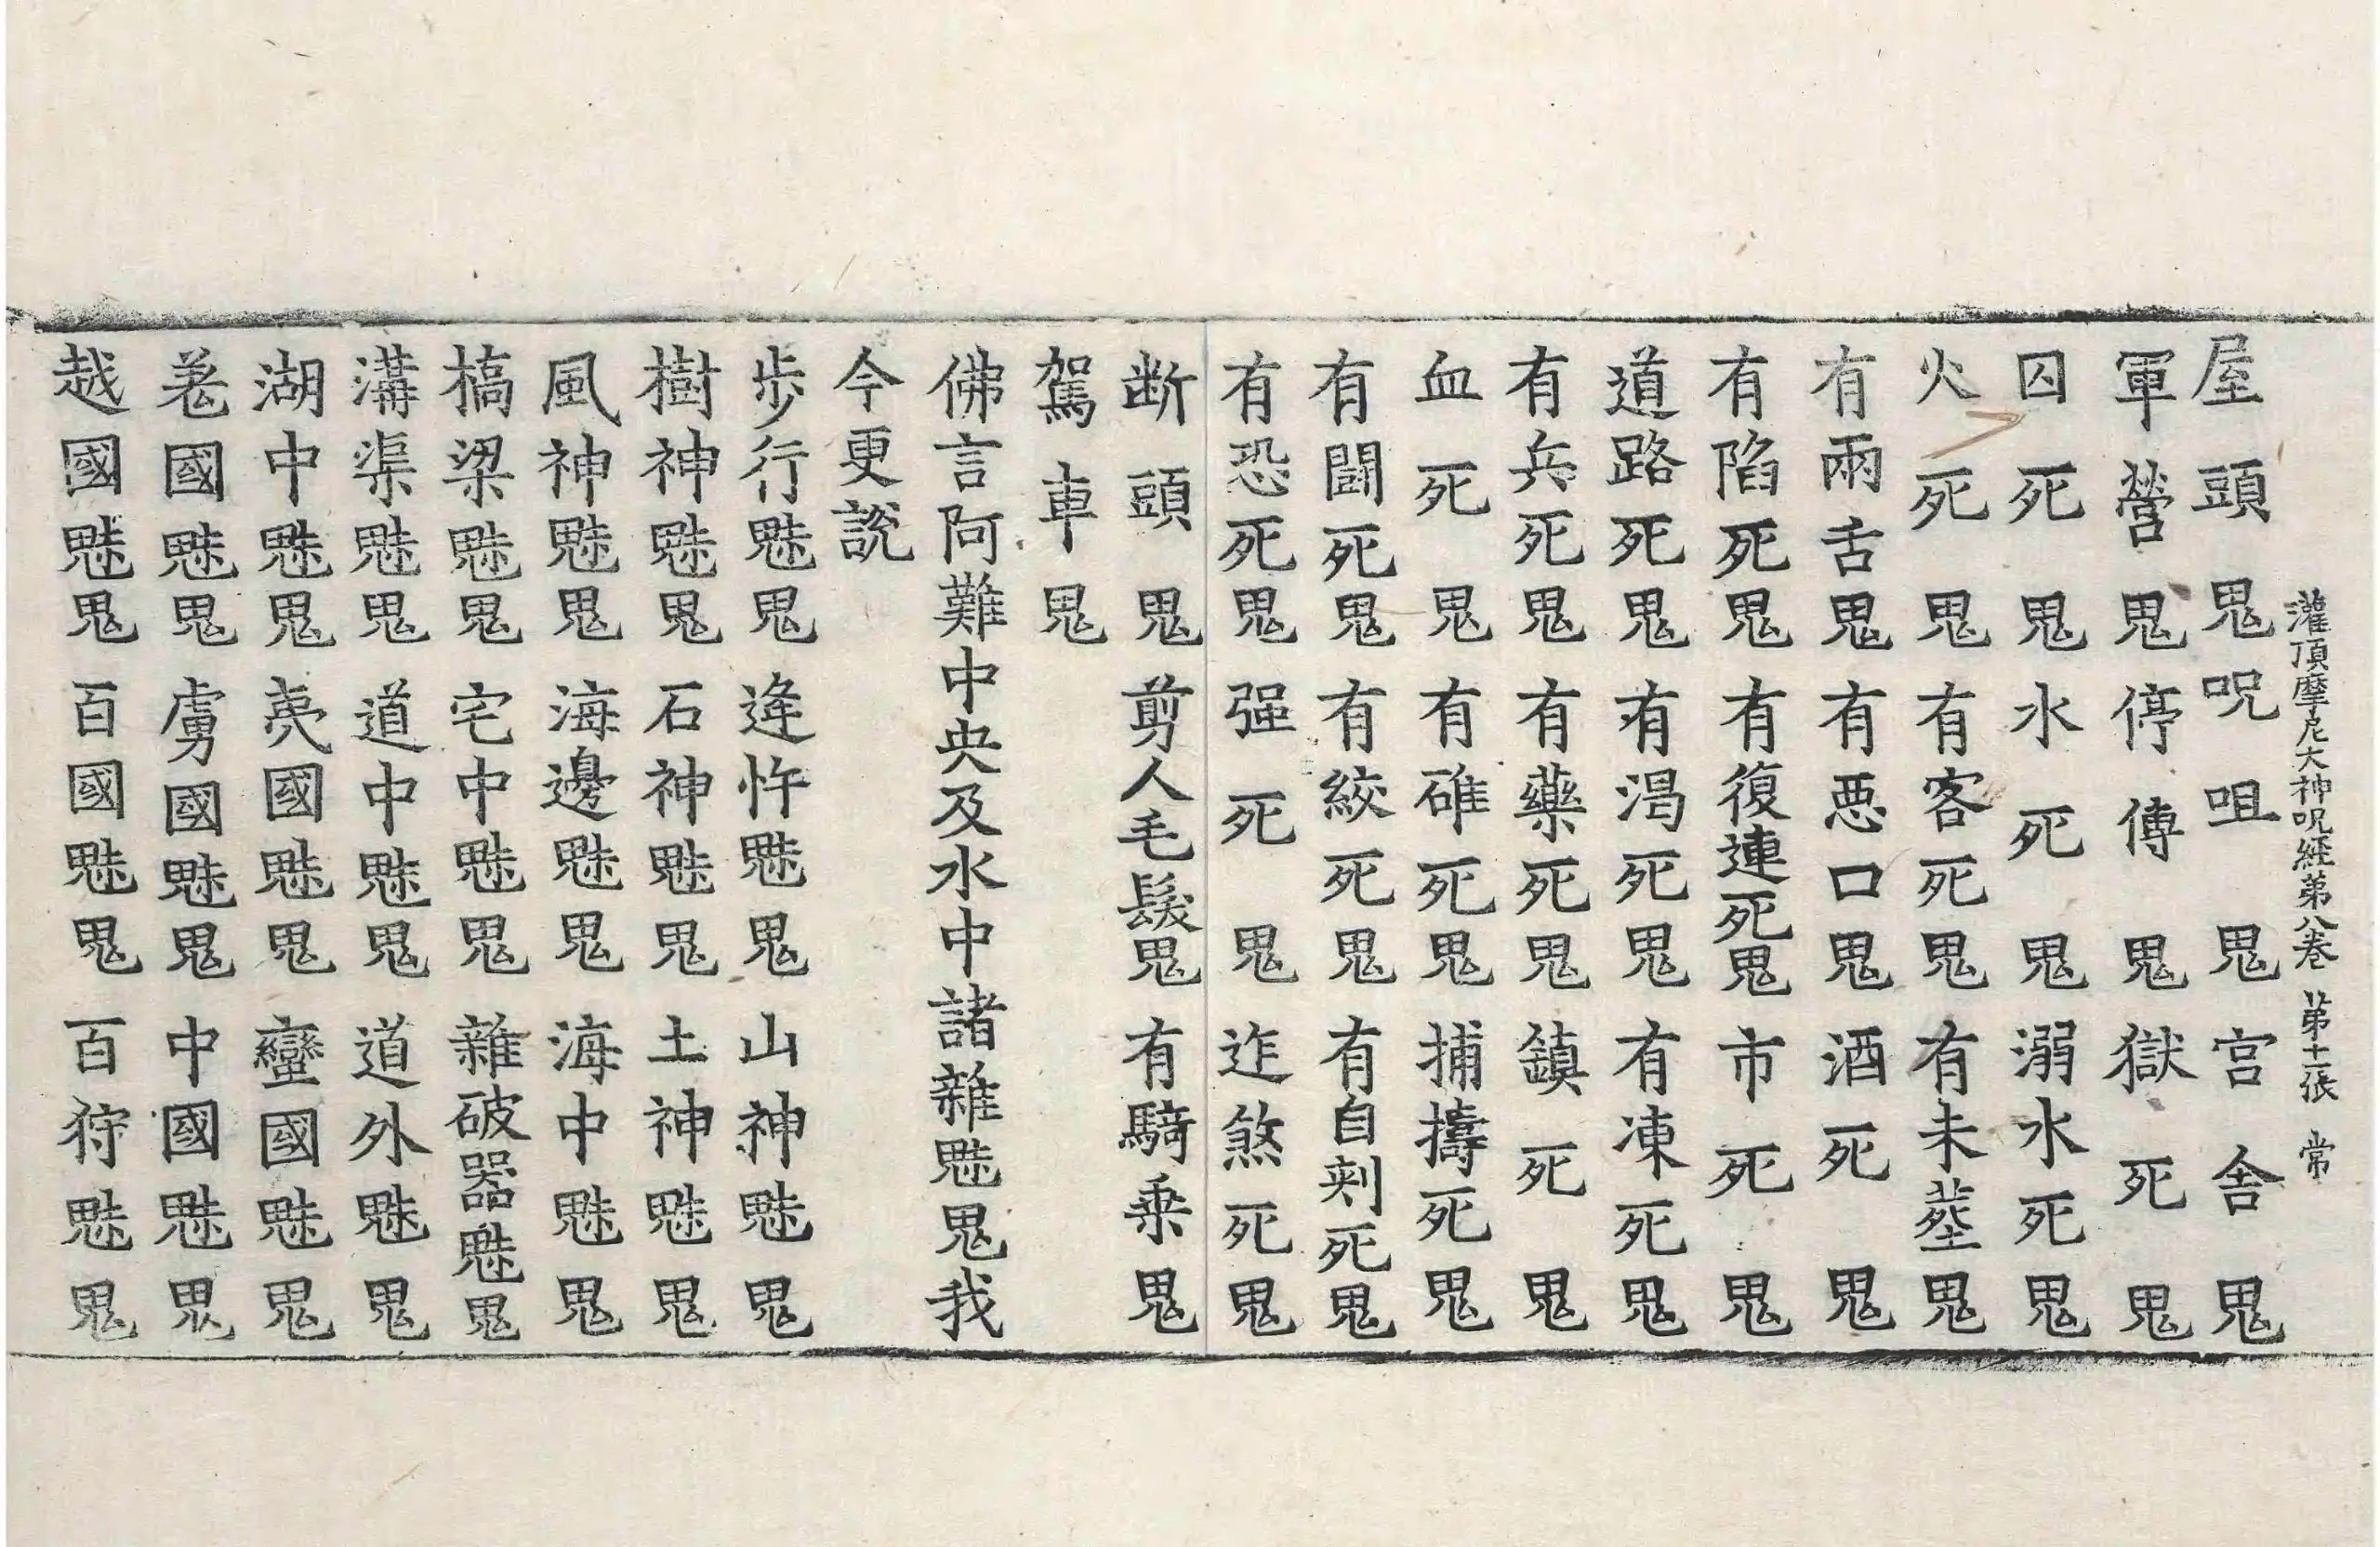 灌頂摩尼大神呪経第八巻 第十一張 常
屋頭鬼 呪咀鬼 宮舎鬼
軍營鬼 停傳鬼 獄死鬼
囚死鬼 水死鬼 溺水死鬼
火死鬼 有客死鬼 有未塟鬼
有兩舌鬼 有悪口鬼 酒死鬼
有陷死鬼 有復連死鬼 市死鬼
道路死鬼 有渴死鬼 有凍死鬼
有兵死鬼 有藥死鬼 鎮死鬼
血死鬼 有碓死鬼 捕擣死鬼
有鬪死鬼 有絞死鬼 有自刾死鬼
有恐死鬼 强死鬼 迮煞死鬼
断頭鬼 剪人毛髮鬼 有騎乗鬼
駕車鬼
佛言阿難中央及水中諸雜魅鬼我
今更說
歩行魅鬼 逄忤魅鬼 山神魅鬼
樹神魅鬼 石神魅鬼 土神魅鬼
風神魅鬼 海邊魅鬼 海中魅鬼
槗梁魅鬼 宅中魅鬼 雜破器魅鬼
溝渠魅鬼 道中魅鬼 道外魅鬼
湖中魅鬼 夷國魅鬼 蠻國魅鬼
羌國魅鬼 虜國魅鬼 中國魅鬼
越國魅鬼 百國魅鬼 百狩魅鬼